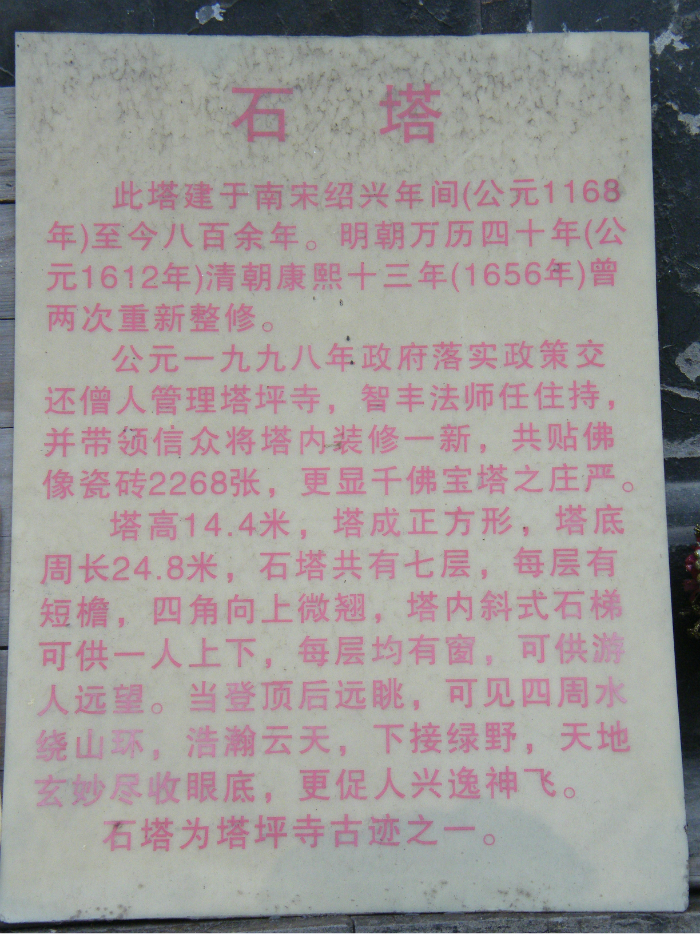 石 塔
此塔建于南宋绍兴年间(公元1168
年)至今八百余年。明朝万历四十年(公
元1612年)清朝康熙十三年(1656年)曾
两次重新整修。
公元一九九八年政府落实政策交
还僧人管理塔坪寺，智丰法师任住持，
并带领信众将塔内装修一新，共贴佛
像瓷砖2268张，更显千佛宝塔之庄严。
塔高14.4米，塔成正方形，塔底
周长24.8米，石塔共有七层，每层有
短檐，四角向上微翘，塔内斜式石梯
可供一人上下，每层均有窗，可供游
人远望。当登顶后远眺，可见四周水
绕山环，浩瀚云天，下接绿野，天地
玄妙尽收眼底，更促人兴逸神飞。
石塔为塔坪寺古迹之一。